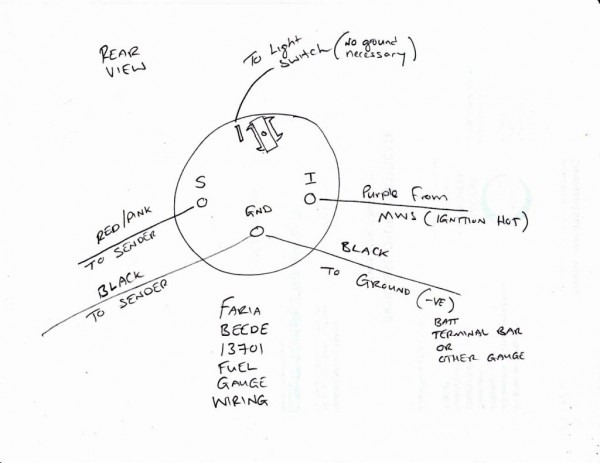 REAR
VIEW
To Light
Switch (No ground
necessary)
S
I
GND
RED/PINK
TO SENDER
Purple From
MWS (IGNITION HOT)
BLACK
TO SENDER
BLACK
To GROUND (-VE)
BATT
TERMINAL BAR
OR
OTHER GAUGE
FARIA
BEEDE
13701
FUEL
GAUGE
WIRING